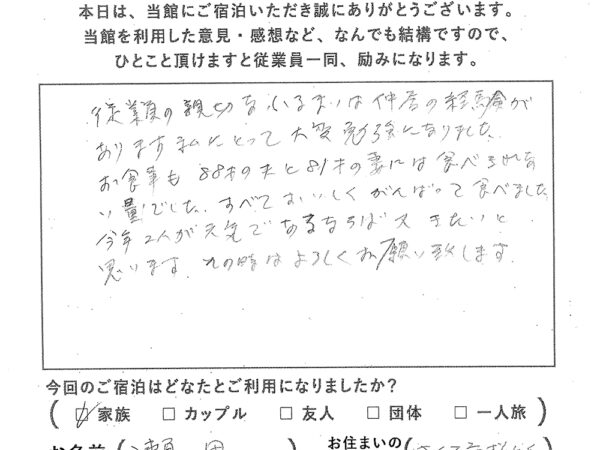 本日は、当館にご宿泊いただき誠にありがとうございます。
当館を利用した意見・感想など、なんでも結構ですので、
ひとこと頂けますと従業員一同、励みになります。
従業員の親切なふるまいは仲居の経験が
あります私にとって大変勉強になりました
お食事も88才の夫と81才の妻には食べられな
い量でした。すべておいしくがんばって食べました
今年2人が元気であるならば又きたいと
思います。その時はよろしくお願い致します。
今回のご宿泊はどなたとご利用になりましたか?
(☑家族 □カップル □友人 □団体 □一人旅)
お名前(
お住まいの